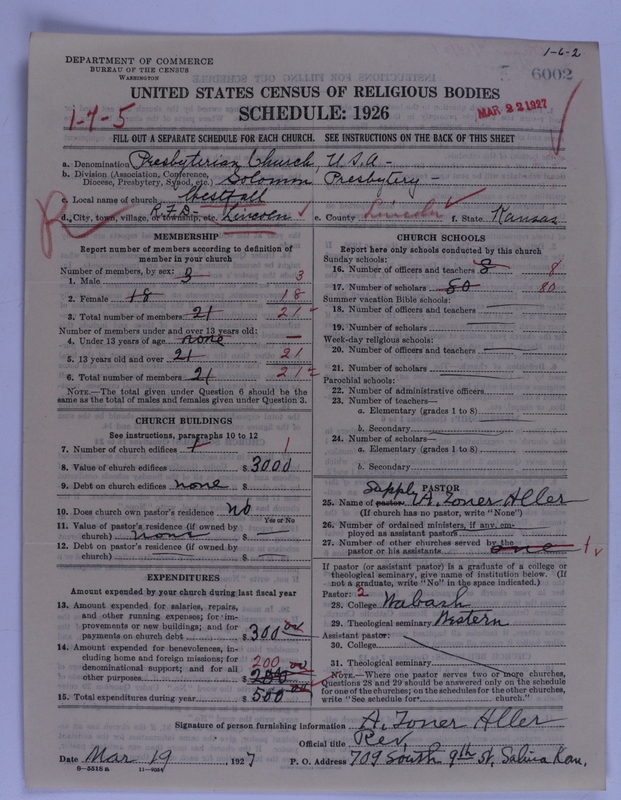 1-6-2
DEPARTMENT OF COMMERCE
BUREAU OF THE CENSUS
WASHINGTON
6002
UNITED STATES CENSUS OF RELIGIOUS BODIES
SCHEDULE: 1926
1-4-5
MAR 22 1927
FILL OUT A SEPARATE SCHEDULE FOR EACH CHURCH. SEE INSTRUCTIONS ON THE BACK OF THIS SHEET
a. Denomination Presbyterian Church, U.S.A-
b. Division (Association, Conference, Diocese, Presbytery, Synod, etc.) Solomon Presbytery-
c. Local name of church Westfall
d. City, town, village, or township, etc. R.F.D. Lincoln e. County Lincoln f. State Kansas
R
MEMBERSHIP
Report number of members according to definition of
member in your church
Number of members, by sex:
1. Male 3 3
2. Female 18 18
3. Total number of members 21 21-
Number of members under and over 13 years old:
4. Under 13 years of age none —
5. 13 years old and over 21 21
6. Total number of members 21 21-
NOTE.—The total given under Question 6 should be the
same as the total of males and females given under Question 3.
CHURCH BUILDINGS
See instructions, paragraphs 10 to 12
7. Number of church edifices 1 1
8. Value of church edifices $ 3000
9. Debt on church edifices none $
10. Does church own pastor's residence No
Yes or No
11. Value of pastor's residence (if owned by
church) none $ —
12. Debt on pastor's residence (if owned by
church) — $ —
EXPENDITURES
Amount expended by your church during last fiscal year
13. Amount expended for salaries, repairs,
and other running expenses; for improvements
or new buildings; and for
payments on church debt $ 300 00
14. Amount expended for benevolences, including
home and foreign missions; for
denominational support; and for all 200 00
other purposes $ 200
15. Total expenditures during year $ 500 00
CHURCH SCHOOLS
Report here only schools conducted by this church
Sunday schools:
16. Number of officers and teachers 8 8
17. Number of scholars 80 80
Summer vacation Bible schools:
18. Number of officers and teachers
19. Number of scholars
Week-day religious schools:
20. Number of officers and teachers
21. Number of scholars
Parochial schools:
22. Number of administrative officers
23. Number of teachers—
a. Elementary (grades 1 to 8)
b. Secondary
24. Number of scholars—
a. Elementary (grades 1 to 8)
b. Secondary
PASTOR
Supply
25. Name of pastor A. Zoner Aller
(If church has no pastor, write "None")
26. Number of ordained ministers, if any, employed
as assistant pastors
27. Number of other churches served by the
pastor or his assistants one 1
If pastor (or assistant pastor) is a graduate of a college or
theological seminary, give name of institution below. (If
not a graduate, write "No" in the space indicated.)
Pastor: 2
28. College Wabash
29. Theological seminary Western
Assistant pastor:
30. College
31. Theological seminary
NOTE.—Where one pastor serves two or more churches,
Questions 28 and 29 should be answered only on the schedule
for one of the churches; on the schedules for the other churches,
write "See schedule for church."
Signature of person furnishing information A. Zoner Aller
Official title Rev.
Date Mar 19, 1927 P. O. Address 709 South 9th St, Salina Kan.
8-5518 a 11-9054